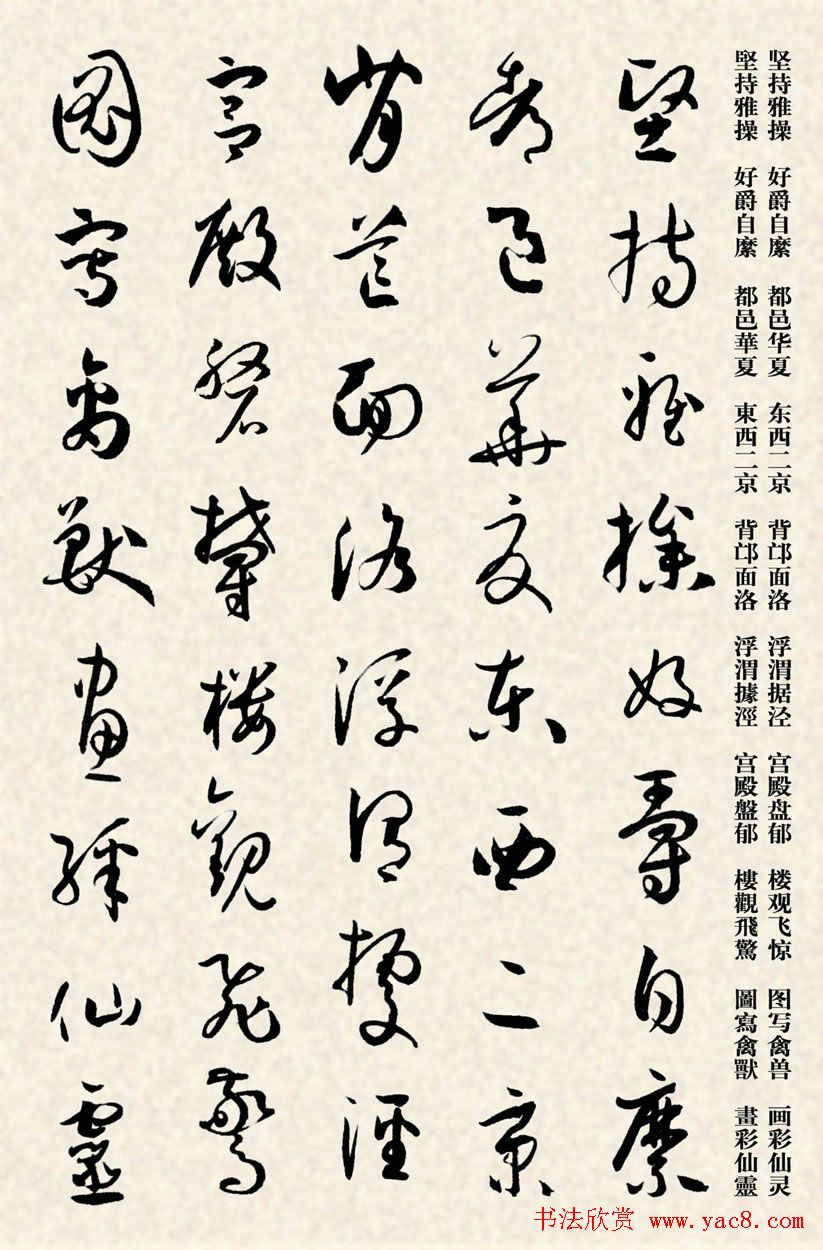 坚持雅操 好爵自縻 都邑华夏 东西二京 背邙面洛 浮渭据泾 宫殿盘郁 楼观飞惊 图写禽兽 画彩仙灵
堅持雅操 好爵自縻 都邑華夏 東西二京 背邙面洛 浮渭據涇 宮殿盤郁 樓觀飛驚 圖寫禽獸 畫彩仙靈
堅持雅操好爵自縻
都邑華夏東西二京
背芒面洛浮渭據涇
宮殿磐鬱樓觀飛驚
圖寫禽獸畫綵仙靈
书法欣赏 www.yac8.com